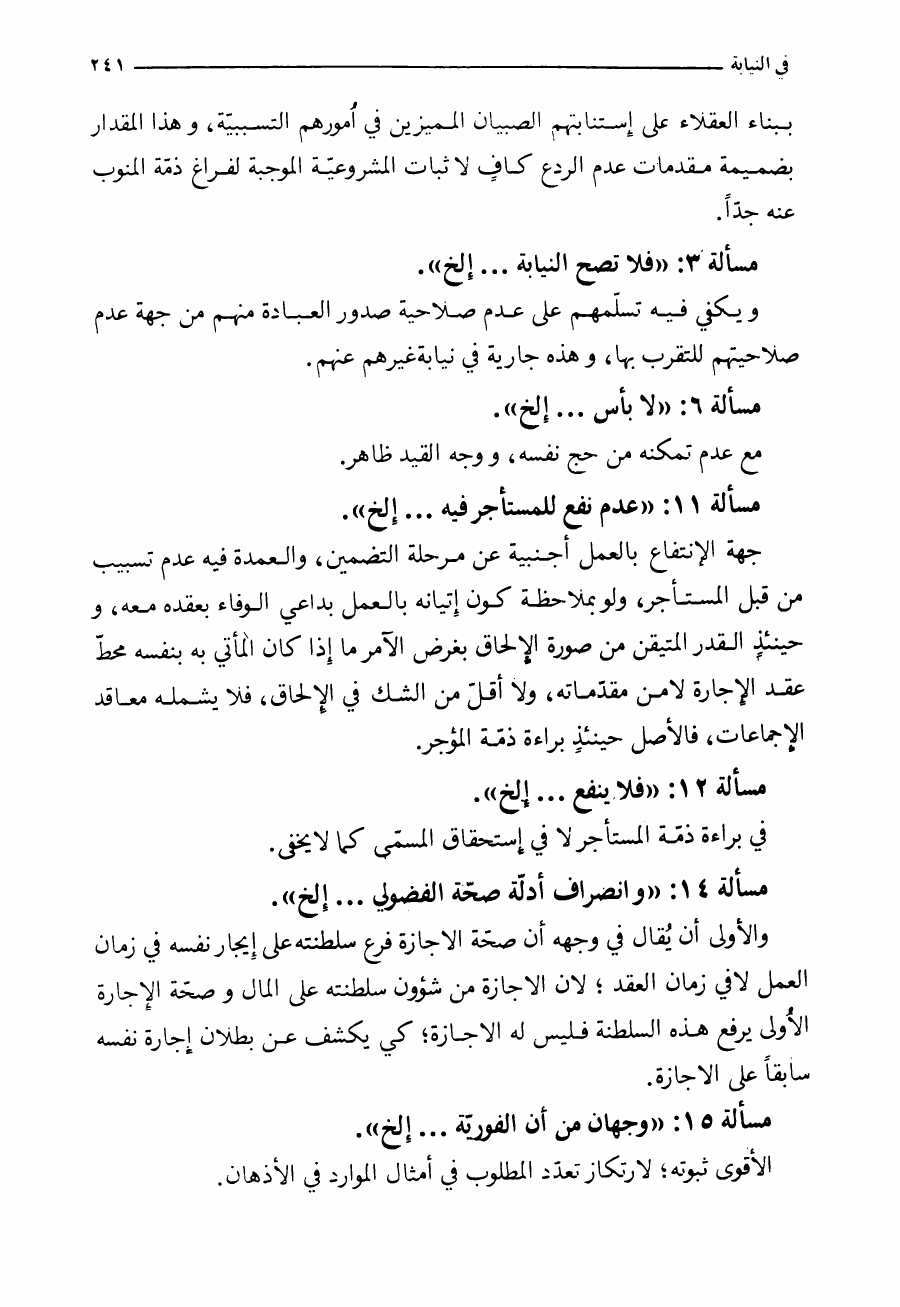 في النيابة ٢٤١
بـبناء العقلاء على إسـتنابتهم الصبيان المـميزين في اُمورهم التسـببيّة، و هذا المقدار
بضمـيمة مـقدمات عدم الردع كـافٍ لا ثبات المشروعيّـة الموجبة لفـراغ ذمّة المنوب
عنه جدّاً.
مسألة ٣: «فلا تصح النيابة ... إلخ».
و يـكفي فـيـه تسلّمهـم على عـدم صـلاحية صدور العـبـادة منهـم من جهة عدم
صلاحيتهم للتقرب بها، و هذه جارية في نيابةغيرهم عنهم.
مسألة ٦: «لا بأس ... إلخ».
مع عدم تمكنه من حج نفسه، و وجه القيد ظاهر.
مسألة ١١: «عدم نفع للمستأجر فيه ... إلخ».
جهة الإنتفاع بالعمل أجـنبية عن مـرحلة التضمين، والـعمدة فيه عدم تسبيب
من قبل المسـتـأجر، ولو بملاحظـة كـون إتيانه بالـعمل بداعي الـوفاء بعقده مـعه، و
حينئذٍ الـقدر المتيقن من صورة الإلحاق بغرض الآمر ما إذا كان المأتي به بنفسه محطّ
عقـد الإجارة لامـن مقدّمـاته، ولا أقـلّ من الشـك في الإلحاق، فلا يشـملـه معـاقد
الإجماعات، فالأصل حينئذٍ براءة ذمّـة المؤجر.
مسألة ١٢: «فلا ينفع ... إلخ».
في براءة ذمّـة المستأجر لا في إستحقاق المسمّى كما لايخفى.
مسألة ١٤: «و انصراف أدلّة صحّة الفضولي ... إلخ».
والأولى أن يُقال في وجهه أن صحّة الاجازة فرع سلطنته على إيجار نفسه في زمان
العمل لافي زمان العقد ؛ لان الاجازة من شؤون سلطنته على المال و صحّة الإجارة
الاُولى يرفع هـذه السلطنة فـليس له الاجـازة؛ كـي يكشف عـن بطلان إجارة نفسه
سابقاً على الاجازة.
مسألة ١٥: «وجهان من أن الفوريّة ... إلخ».
الأقوى ثبوته؛ لارتكاز تعدّد المطلوب في أمثال الموارد في الأذهان.